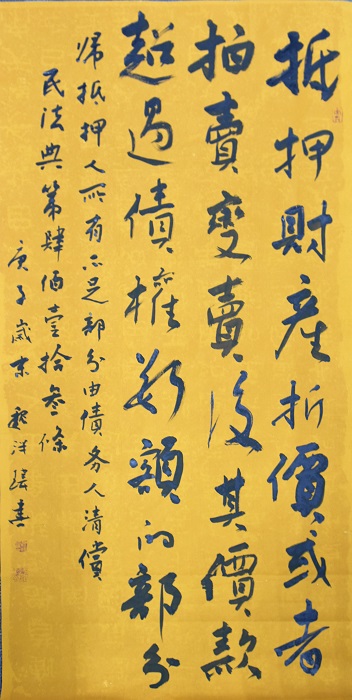 抵押財產折價或者
拍賣變賣後其價款
超過債權數額的部分
歸抵押人所有不足部分由債务人清償
民法典第肆佰壹拾叁條
庚子歲末